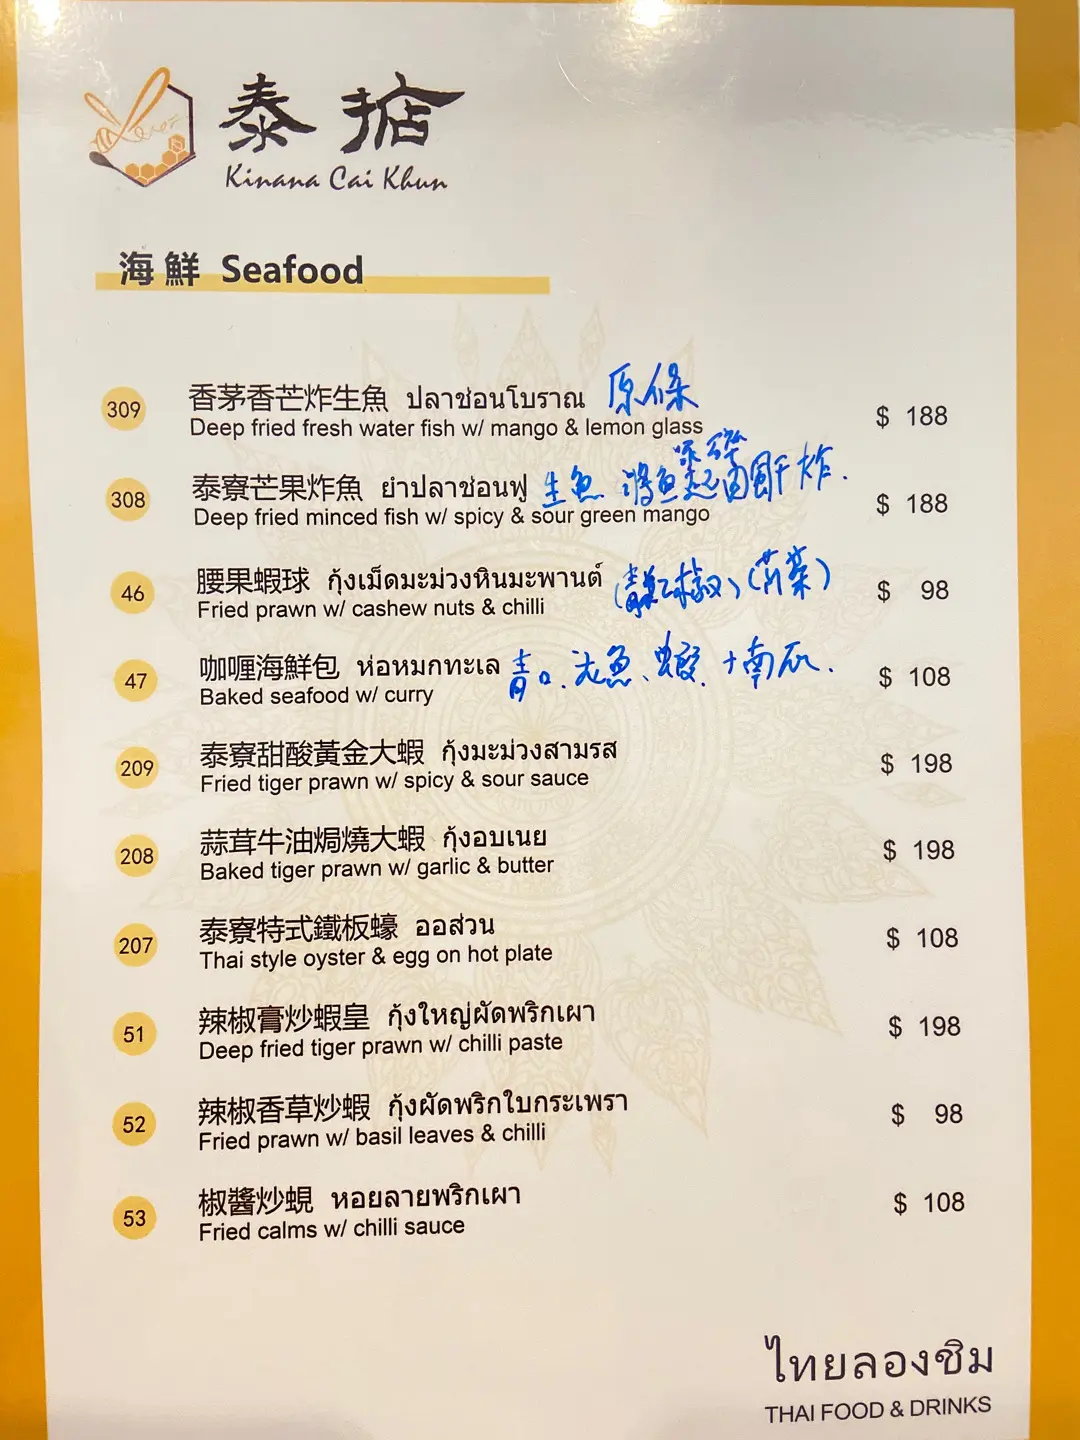 泰掂
Kinana Cai Khun
海鮮 Seafood
309 香茅香芒炸生魚 ปลาช่อนโบราณ 原條 $ 188
Deep fried fresh water fish w/ mango & lemon glass
308 泰寮芒果炸魚 ยำปลาช่อนฟู 生魚 $ 188
Deep fried minced fish w/ spicy & sour green mango
46 腰果蝦球 กุ้งเม็ดมะม่วงหินมะพานต์ $ 98
Fried prawn w/ cashew nuts & chilli
47 咖喱海鮮包 ห่อหมกทะเล 青口 $ 108
Baked seafood w/ curry
209 泰寮甜酸黃金大蝦 กุ้งมะม่วงสามรส $ 198
Fried tiger prawn w/ spicy & sour sauce
208 蒜茸牛油焗燒大蝦 กุ้งอบเนย $ 198
Baked tiger prawn w/ garlic & butter
207 泰寮特式鐵板蠔 ออส่วน $ 108
Thai style oyster & egg on hot plate
51 辣椒膏炒蝦皇 กุ้งใหญ่ผัดพริกเผา $ 198
Deep fried tiger prawn w/ chilli paste
52 辣椒香草炒蝦 กุ้งผัดพริกใบกระเพรา $ 98
Fried prawn w/ basil leaves & chilli
53 椒醬炒蜆 หอยลายพริกเผา $ 108
Fried calms w/ chilli sauce
ไทยลองชิม
THAI FOOD & DRINKS